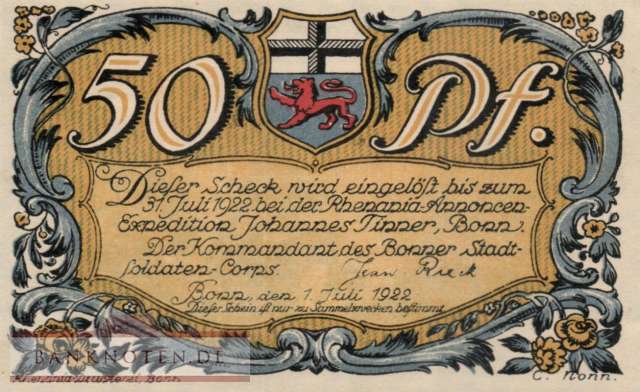 50 Pf.
Dieser Scheck wird eingelöst bis zum
31. Juli 1922 bei der Rhenania-Annoncen-
Expedition Johannes Tinner, Bonn.
Der Kommandant des Bonner Stadt-
soldaten-Corps. Jean Rieck
Bonn, den 1. Juli 1922
Dieser Schein ist nur zu Sammelzwecken bestimmt
BANKNOTEN.DE
Rhenania-Druckerei, Bonn
C. Nonn.